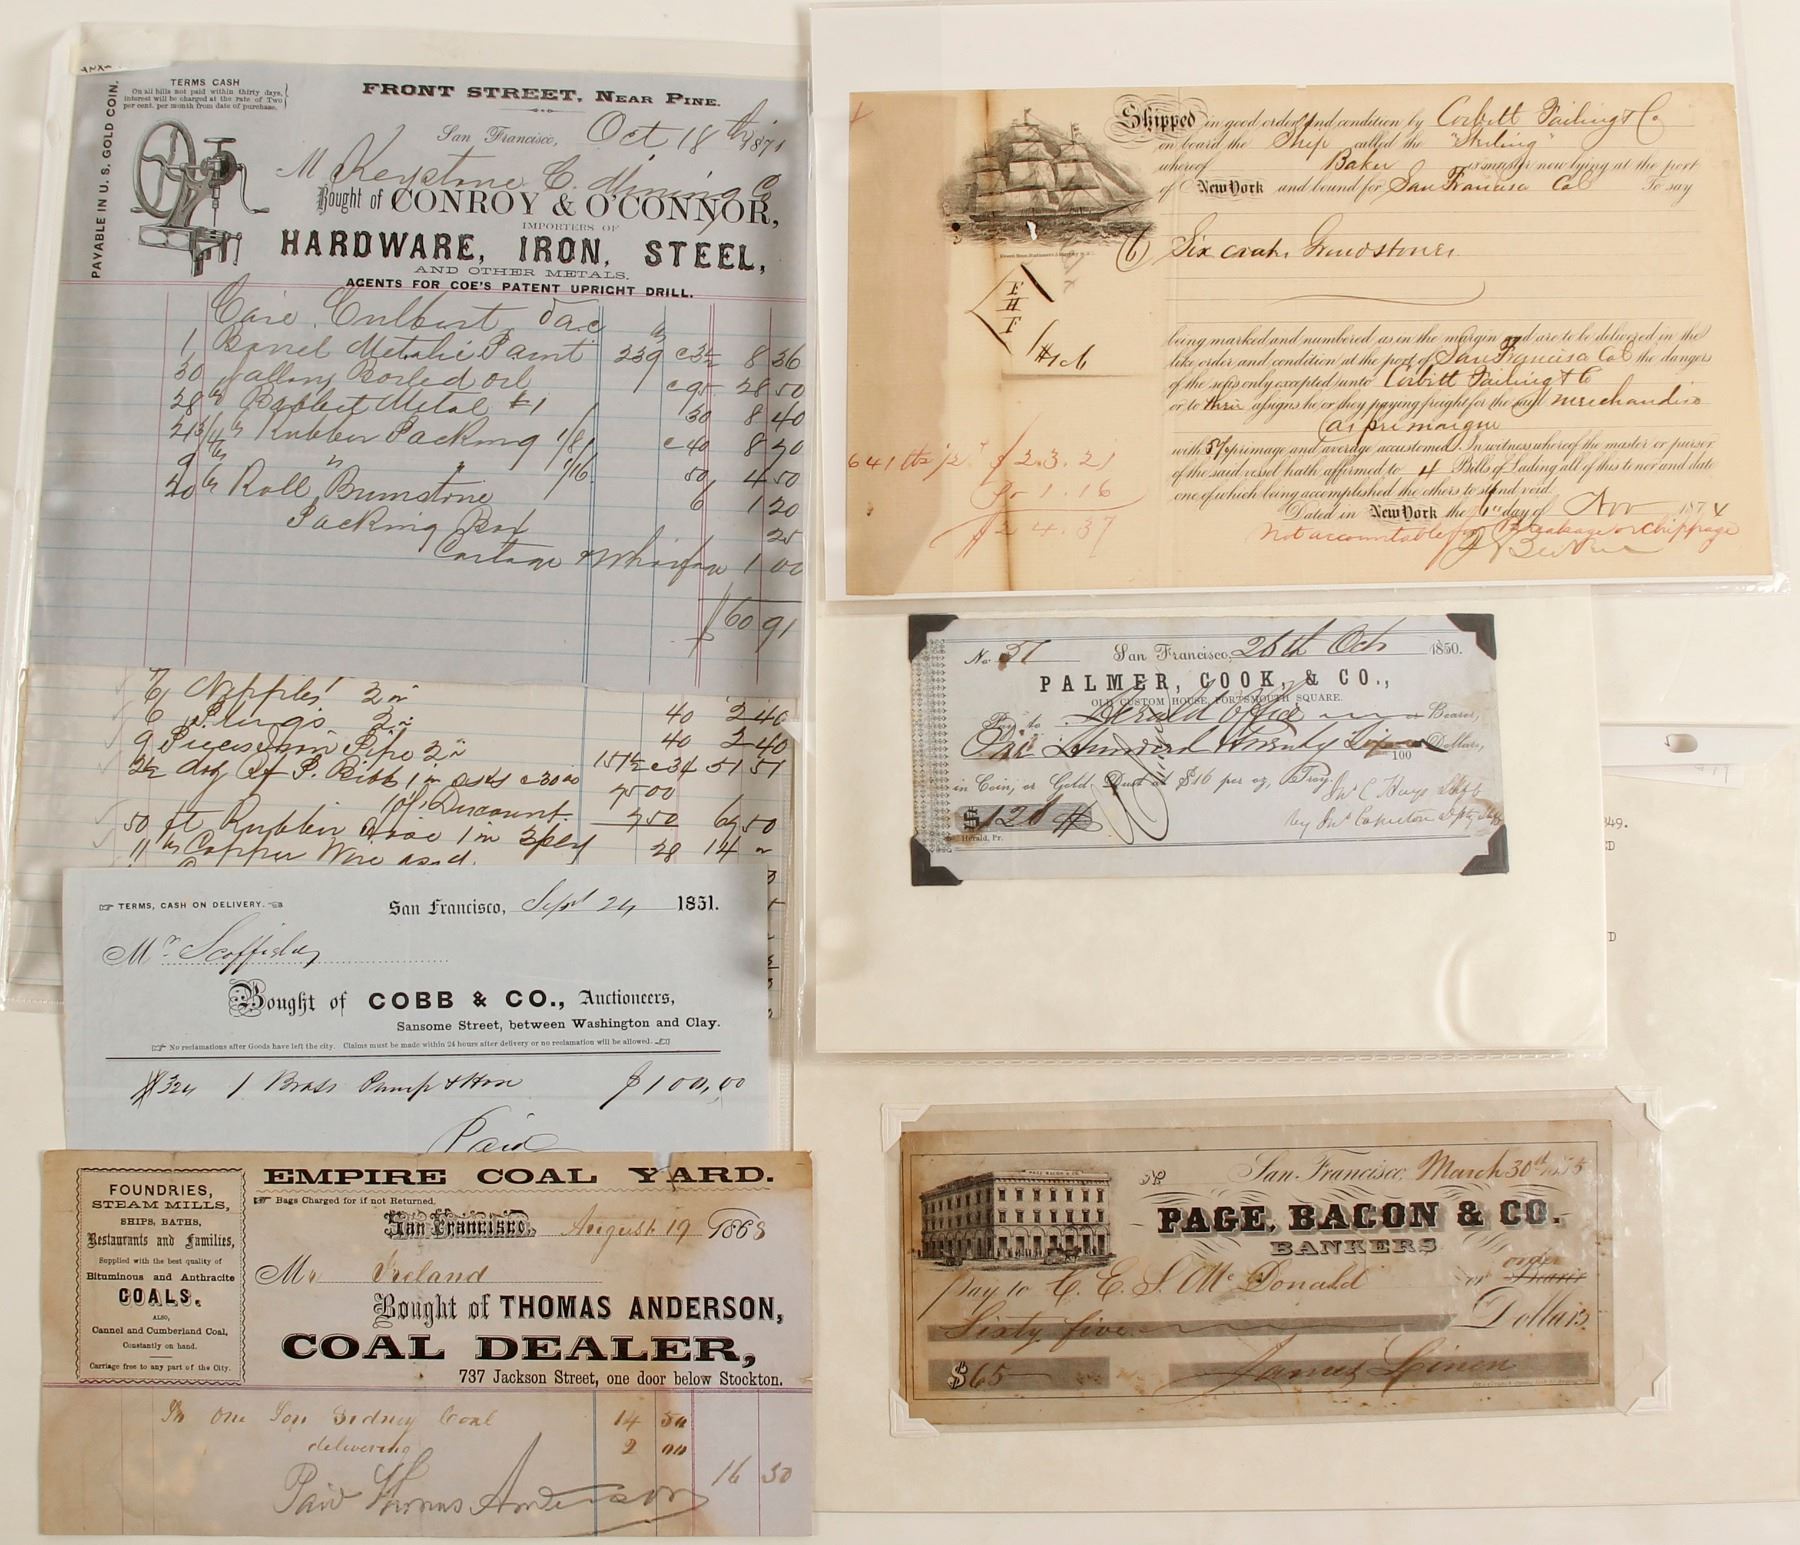 PAYABLE IN U. S. GOLD COIN.
TERMS CASH
On all bills not paid within thirty days,
interest will be charged at the rate of Two
per cent. per month from date of purchase.
FRONT STREET, NEAR PINE.
San Francisco, Oct 18th 1871
M Keystone C. Mining Co
Bought of CONROY & O'CONNOR,
IMPORTERS OF
HARDWARE, IRON, STEEL,
AND OTHER METALS.
AGENTS FOR COE'S PATENT UPRIGHT DRILL.
Care Culbert
1 Barrel Metalic Paint 239 c3½ 8 36
30 Gallons Boiled oil c95 28 50
28 lb Babbet Metal #1 30 8 40
21 3/4 lb Rubber Packing 1/8 c40 8 70
9 lb " " 1/16 50 4 50
20 lb Roll Brimstone 6 1 20
Packing Box 25
Cartage & Wharfage 1 00
$60 91
6 Nipples 2 in 40 2 40
6 Plugs 2 in 40 2 40
9 Pieces Iron Pipe 2 in 151½ c34 51 51
2½ doz P. Bibb 1 in c30 00 75 00
10% Discount 7 50 67 50
50 ft Rubber Hose 1 in 3 ply 28 14 "
11 lb Copper Wire assd.
TERMS, CASH ON DELIVERY.
San Francisco, Sept 24 1851.
Mr.
Bought of COBB & CO., Auctioneers,
Sansome Street, between Washington and Clay.
No reclamations after Goods have left the city. Claims must be made within 24 hours after delivery or no reclamation will be allowed.
324 1 Brass Pump & Hose $100,00
Paid
FOUNDRIES,
STEAM MILLS,
SHIPS, BATHS,
Restaurants and Families,
Supplied with the best quality of
Bituminous and Anthracite
COALS.
ALSO,
Cannel and Cumberland Coal,
Constantly on hand.
Carriage free to any part of the City.
EMPIRE COAL YARD.
Bags Charged for if not Returned.
San Francisco, August 19 1868
Mr Ireland
Bought of THOMAS ANDERSON,
COAL DEALER,
737 Jackson Street, one door below Stockton.
To One Ton Sidney Coal 14 50
delivering 2 00
16 50
Paid Thomas Anderson
Shipped in good order and condition by Corbitt Failing & Co
on board the Ship called the "Stirling"
whereof Baker is master now lying at the port
of New York and bound for San Francisco Cal To say
(6) Six crates Grindstones.
F
H
F
#1 @ 6
being marked and numbered as in the margin and are to be delivered in the
like order and condition at the port of San Francisco Cal the dangers
of the seas only excepted unto Corbitt Failing & Co
or to their assigns he or they paying freight for the said merchandise
as per margin
with 5% primage and average accustomed. In witness whereof the master or purser
of the said vessel hath affirmed to 4 Bills of Lading all of this tenor and date
one of which being accomplished the others to stand void.
Dated in New York the day of Nov 1874
Not accountable for Breakage or chippage
$23.21
1.16
$24.37
No 37 San Francisco, 26th Oct 1850.
PALMER, COOK, & CO.,
OLD CUSTOM HOUSE, PORTSMOUTH SQUARE.
Pay to Herald Office or Bearer,
One Hundred twenty Six 100 Dollars,
in Coin, or Gold Dust at $16 per oz, Troy.
Jno C Hays Shff
by Jno Dpty Shff
$126
Herald, Pr.
49.
ED
D
No San Francisco, March 30th 1855
PAGE, BACON & CO.
BANKERS
Pay to C. E. S. McDonald or Bearer order
Sixty five Dollars
$65 James Linen